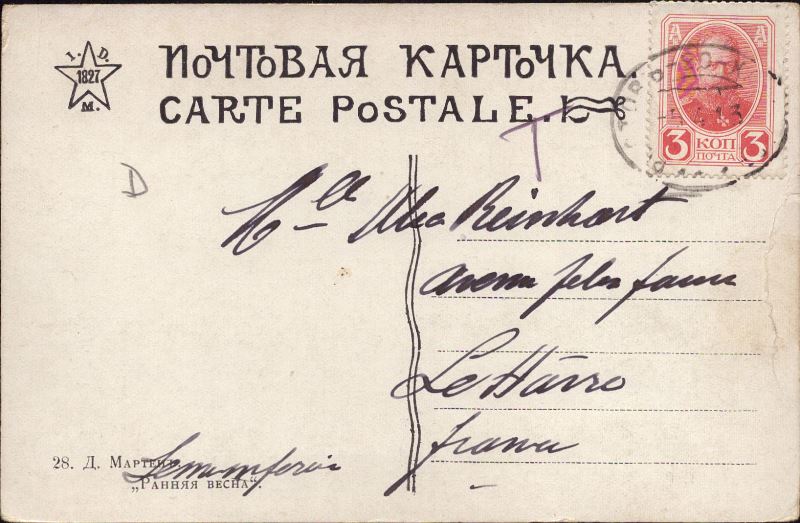 I. D.
1827
M.
ПОЧТОВАЯ КАРТОЧКА.
CARTE POSTALE.
T
3 КОП 3
ПОЧТА
D
Mlle Reinhart
avenue felix faure
Le Hâvre
france
28. Д. Мартенъ.
„Ранняя весна“.